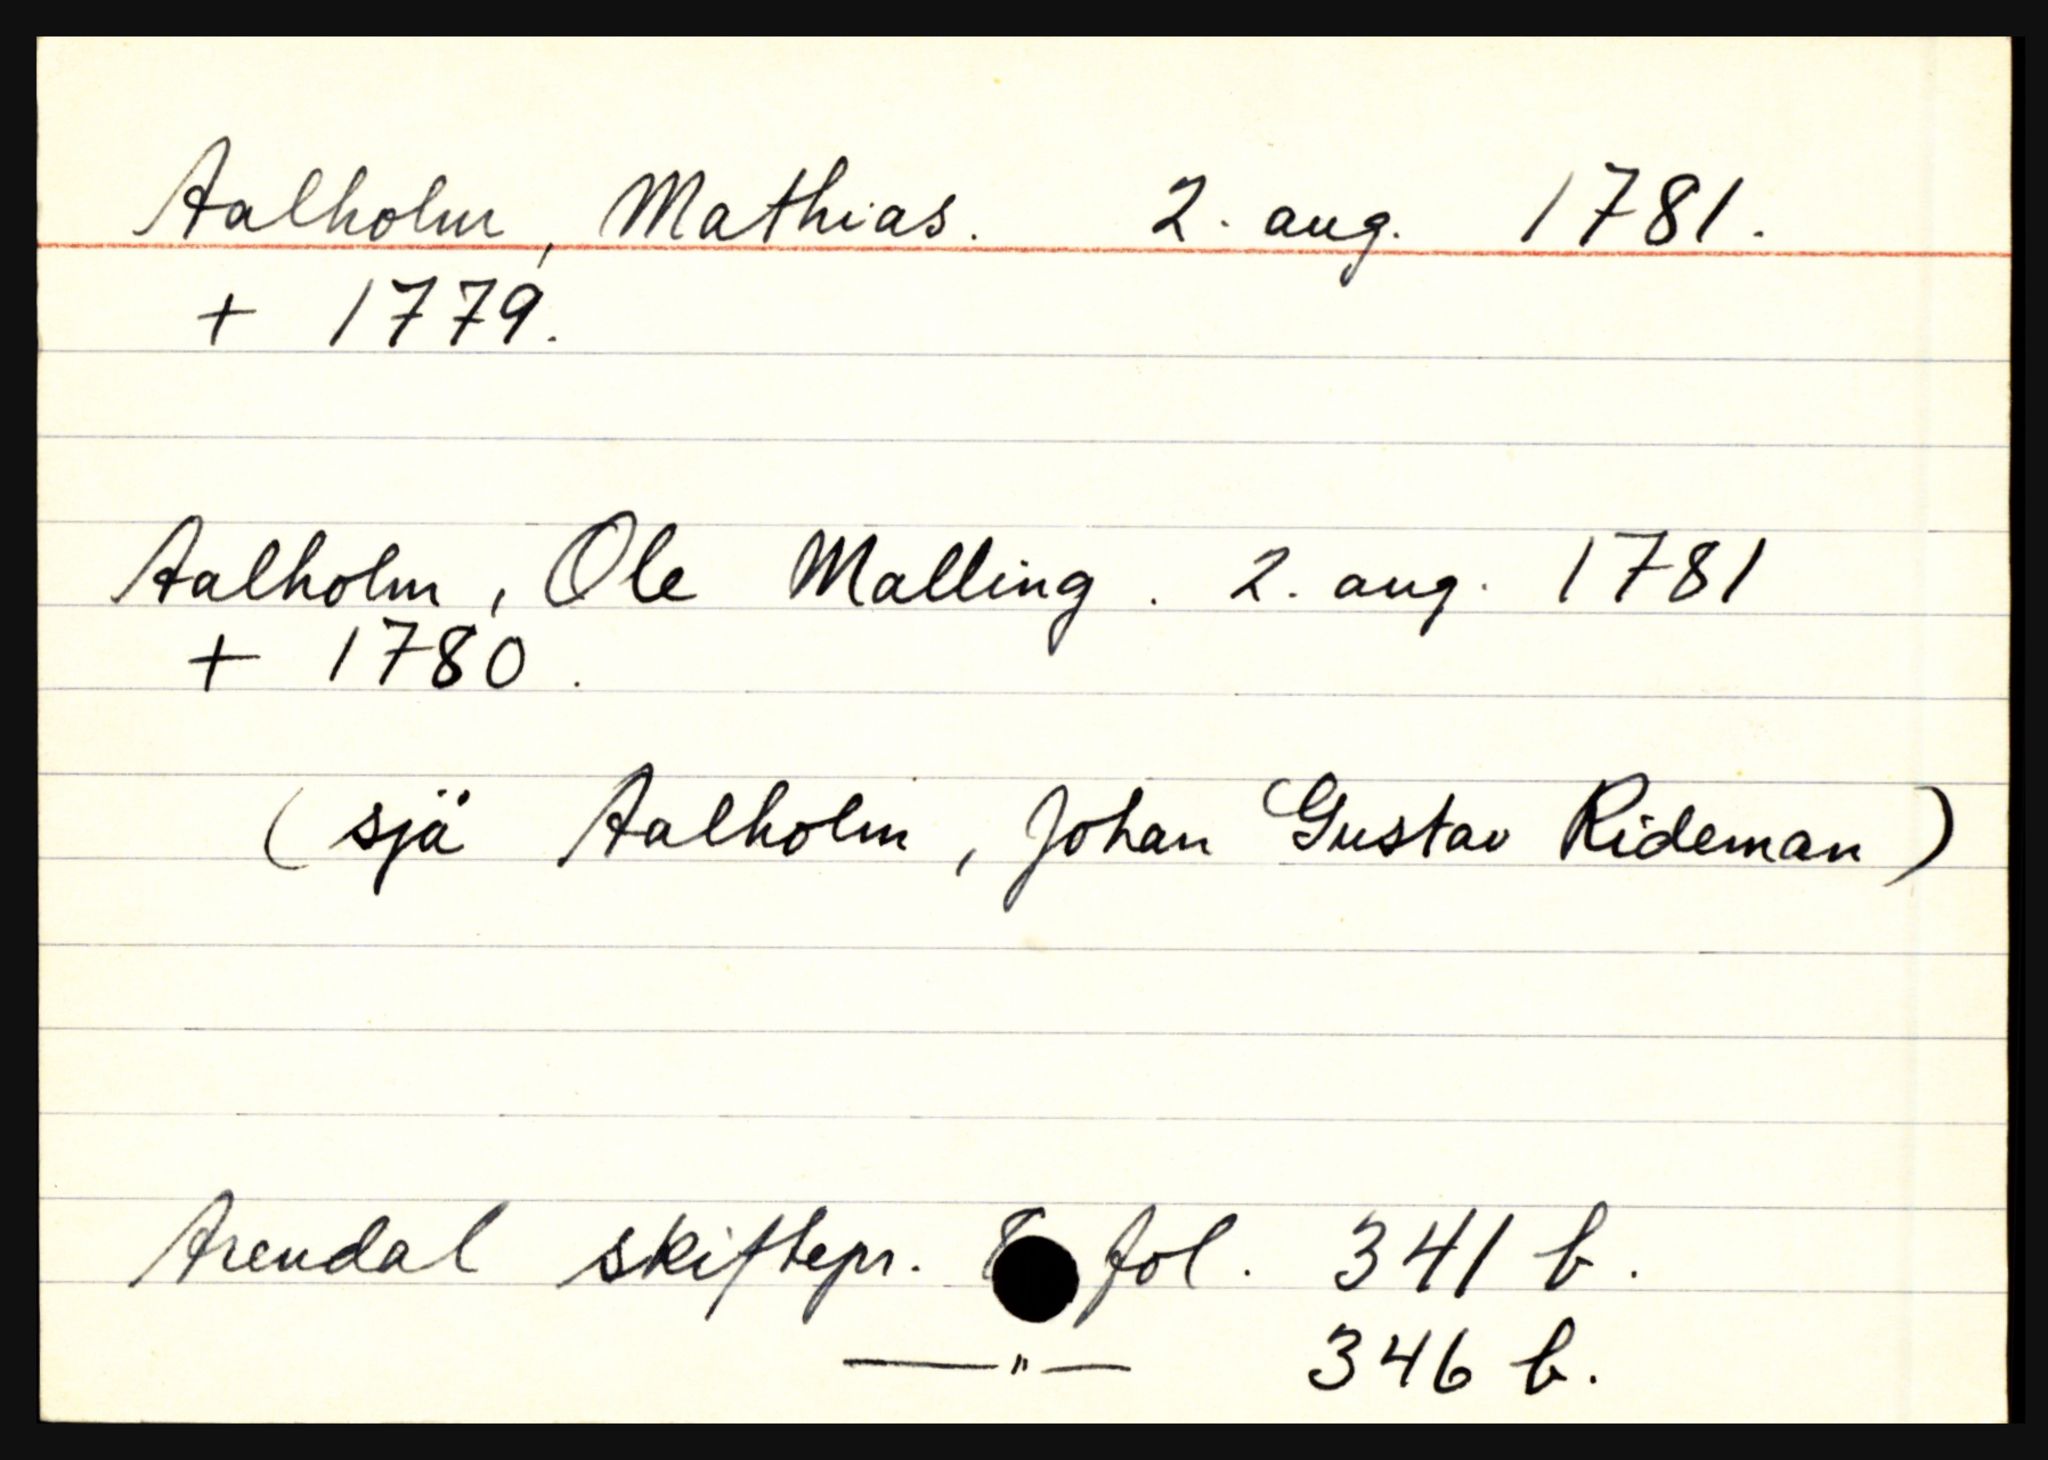 Aalholm, Mathias. 2. aug. 1781.
+ 1779.
Aalholm, Ole Malling. 2. aug. 1781
+ 1780.
(sjä Aalholm, Johan Gustav Rideman)
Arendal skiftepr. fol. 341 b.
—"— 346 b.